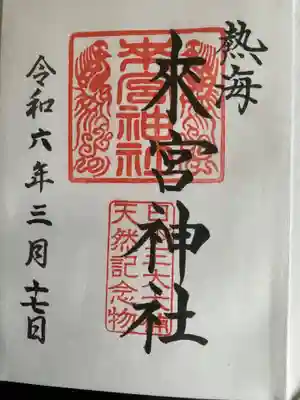 熱海
來宮神社
令和六年三月十七日
來宮神社
天然記念物